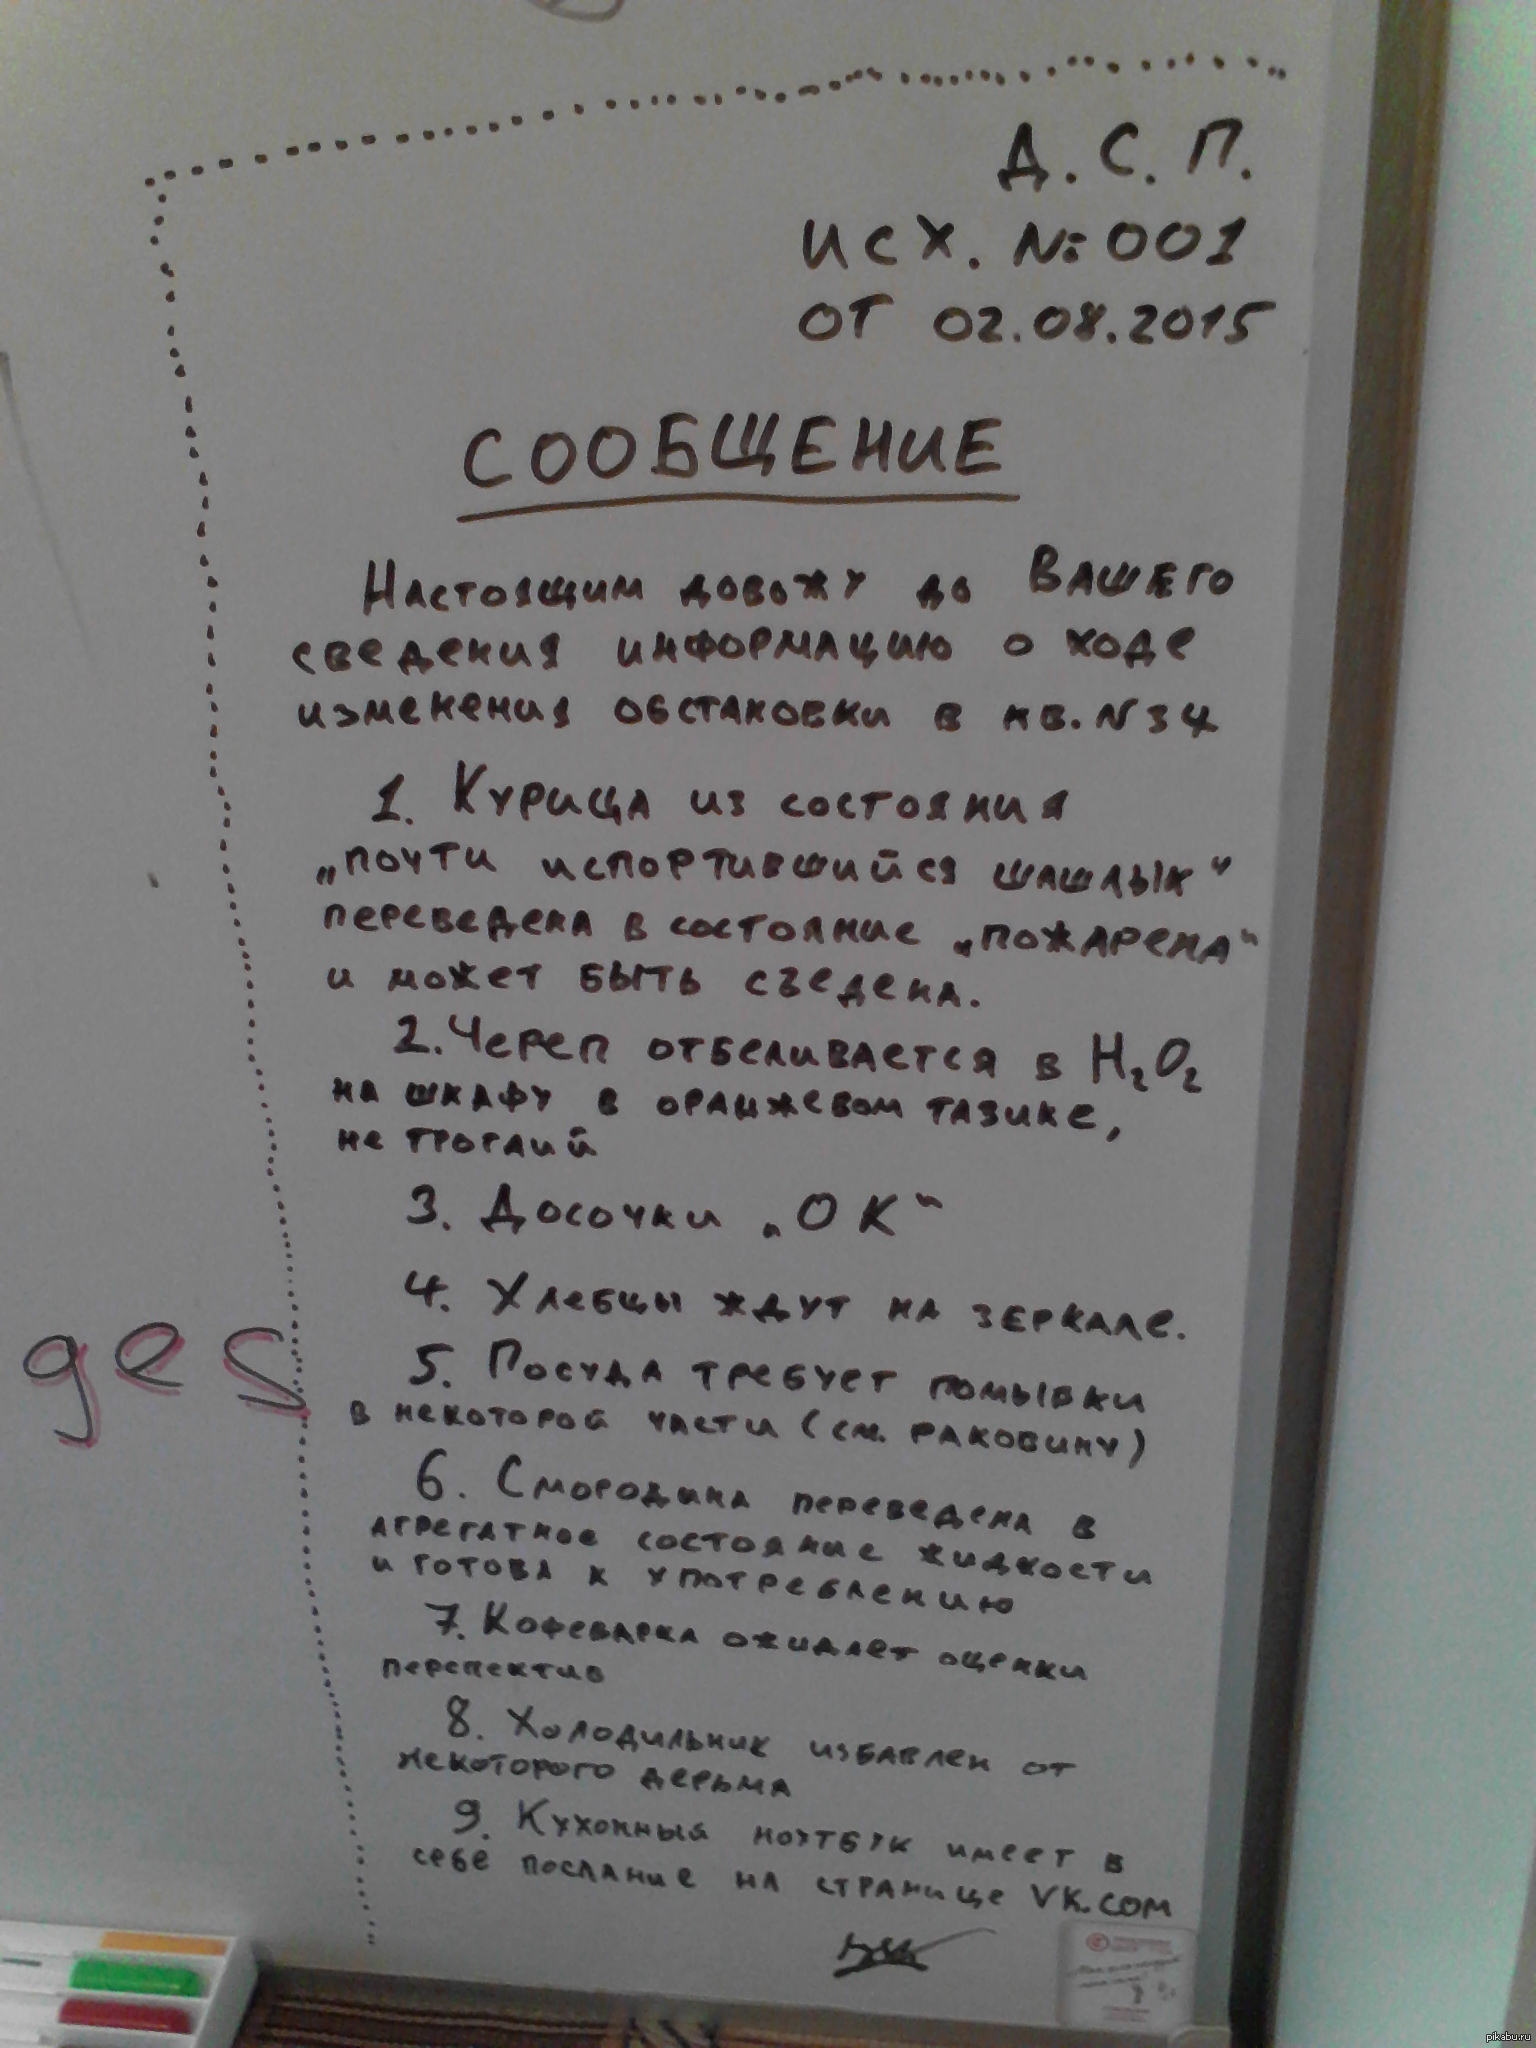 Д.С.П.
ИСХ. №001
ОТ 02.08.2015
СООБЩЕНИЕ
Настоящим довожу до Вашего
сведения информацию о ходе
изменения обстановки в кв. N34
1. Курица из состояния
„почти испортившийся шашлык“
переведена в состояние „пожарена“
и может быть съедена.
2. Череп отбеливается в H₂O₂
на шкафу в оранжевом тазике,
не трогай
3. Досочки „ОК“
4. Хлебцы ждут на зеркале.
5. Посуда требует помывки
в некоторой части (см. раковину)
6. Смородина переведена в
агрегатное состояние жидкости
и готова к употреблению
7. Кофеварка ожидает оценки
перспектив
8. Холодильник избавлен от
некоторого дерьма
9. Кухонный ноутбук имеет в
себе послание на странице VK.COM
ges
pikabu.ru